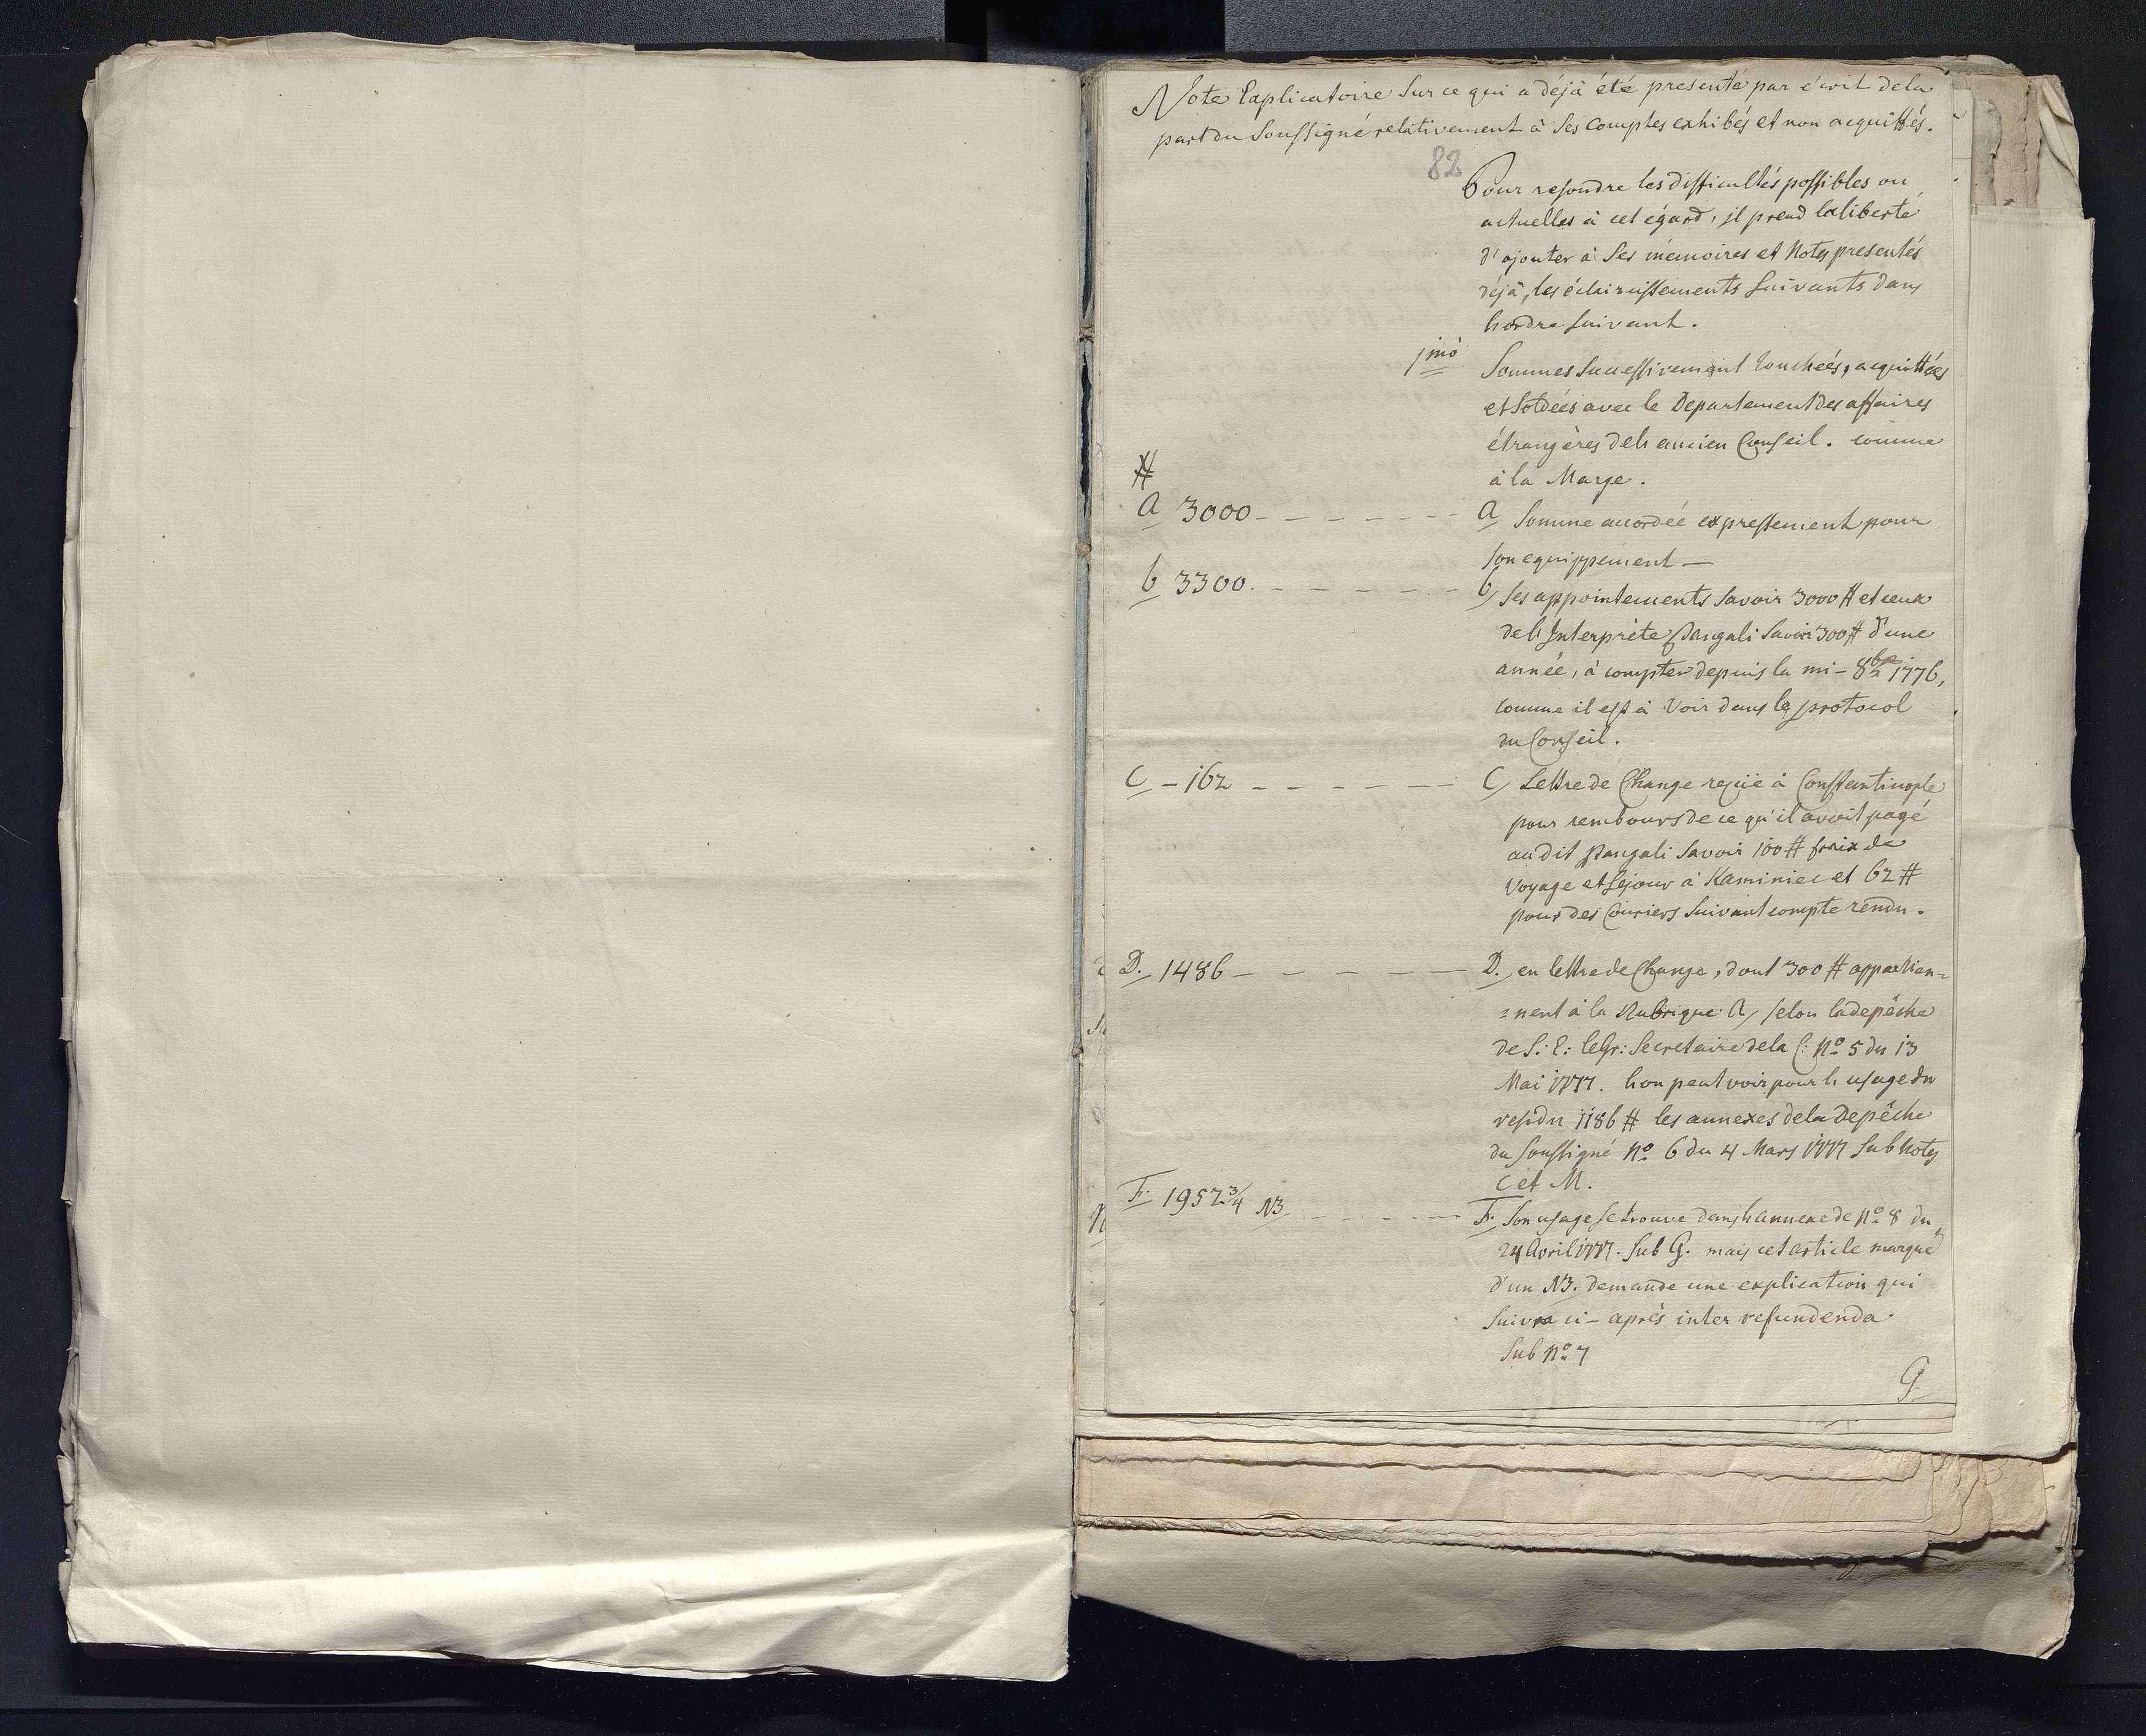 Note Explicatoire Sur ce qui a déjà été presenté par écrit dela
part du Soussigné relativement à Ses Comptes exhibés et non acquittés.
82
Pour resoudre les difficultés possibles ou
actuelles à cet égard, il prend la liberté
d'ajouter à Ses mémoires et Notes presentés
déjà, les éclaircissements Suivants dans
l'ordre suivant.
jmò Sommes Successivement touchées, acquittées
et Soldées avec le Departement des affaires
étrangères del'ancien Conseil. comme
à la Marge.
#
a 3000 - - - - - - a Somme accordée expressement pour
son equippement —
b 3300. - - - - - - b, Ses appointements Savoir 3000 # et ceux
del'Interprète Pangali Savoir 300 # d'une
année, à compter depuis la mi-8bre 1776,
comme il est à Voir dans le protocol
du Conseil.
C - 162 - - - - - - C, Lettre de Change reçüe à Constantinople
pour rembours de ce qu'il avoit payé
au dit Pangali Savoir 100 # fraix de
Voyage et Sejour à Kaminiec et 62 #
pour des Couriers Suivant compte rendu.
D. 1486 - - - - - - D. en lettre de Change, dont 300 # appartien=
=nent à la Rubrique A, selon la depêche
de S: E: le Gr: Secretaire dela C: No 5 du 13
Mai 1777. l'on peut voir pour l'usage du
residu 1186 # les annexes dela Depêche
du Soussigné No 6 du 4 Mars 1777 Sub Notis
C et M.
F. 1957 3/4 NB - - - - - - F. Son usage se trouve dans l'annexe de No 8 du
24 Avril 1777. Sub G. mais cet article marqué
d'un NB. demande une explication qui
Suivra ci-après inter refundenda
Sub No 7
G.